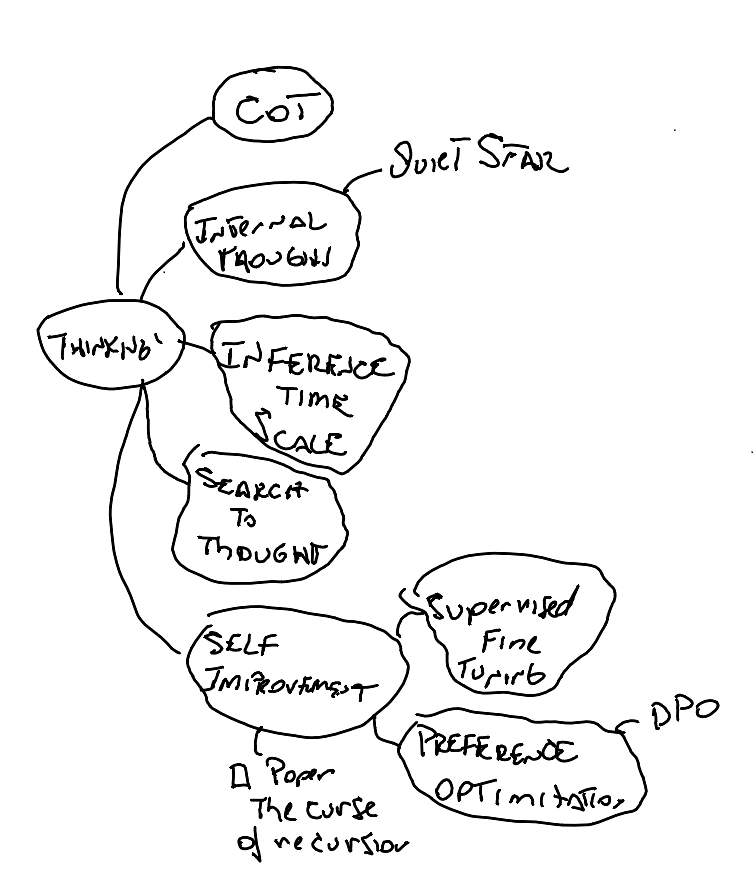 COT
QUIET STAR
INTERNAL
THOUGHTS
THINKING
INFERENCE
TIME
SCALE
SEARCH
TO
THOUGHT
SELF
IMPROVEMENT
Supervised
Fine
TUNING
DPO
PREFERENCE
OPTIMIZATION
Paper
The curse
of recursion